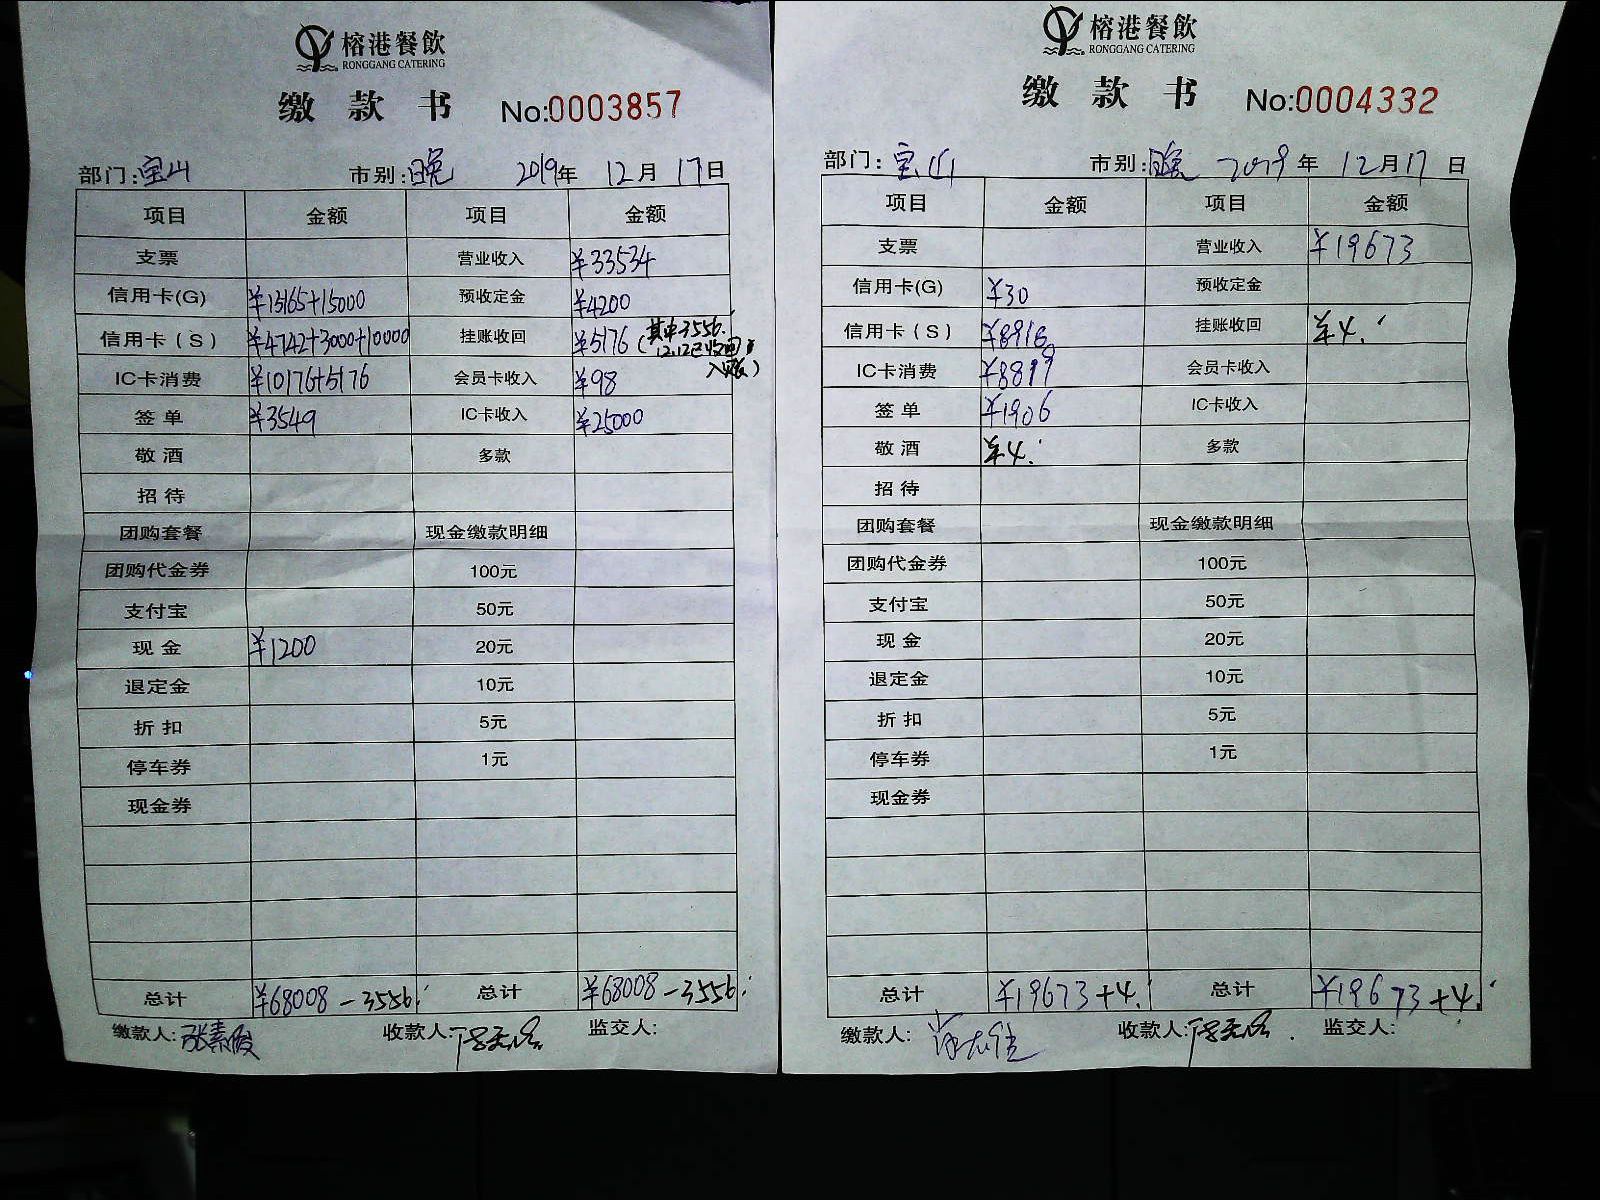 榕港餐飲
RONGGANG CATERING
缴款书 No:0003857
部门:宝山 市别:晚 2019年 12月 17日
项目 金额 项目 金额
支票 营业收入 ¥33534
信用卡(G) ¥13165+15000 预收定金 ¥4200
信用卡(S) ¥4742+3000+10000 挂账收回 ¥5176 (其中3556.
12.12已收回
入账)
IC卡消费 ¥10176+5176 会员卡收入 ¥98
签单 ¥3549 IC卡收入 ¥25000
敬酒 多款
招待
团购套餐 现金缴款明细
团购代金券 100元
支付宝 50元
现金 ¥1200 20元
退定金 10元
折扣 5元
停车券 1元
现金券
总计 ¥68008-3556. 总计 ¥68008-3556.
缴款人:张素 收款人: 监交人:
榕港餐飲
RONGGANG CATERING
缴款书 No:0004332
部门:宝山 市别:晚 2019年 12月17日
项目 金额 项目 金额
支票 营业收入 ¥19673
信用卡(G) ¥30 预收定金
信用卡(S) ¥8918 挂账收回 ¥4.
IC卡消费 ¥8819 会员卡收入
签单 ¥1906 IC卡收入
敬酒 ¥4. 多款
招待
团购套餐 现金缴款明细
团购代金券 100元
支付宝 50元
现金 20元
退定金 10元
折扣 5元
停车券 1元
现金券
总计 ¥19673+4. 总计 ¥19673+4.
缴款人: 收款人: 监交人: